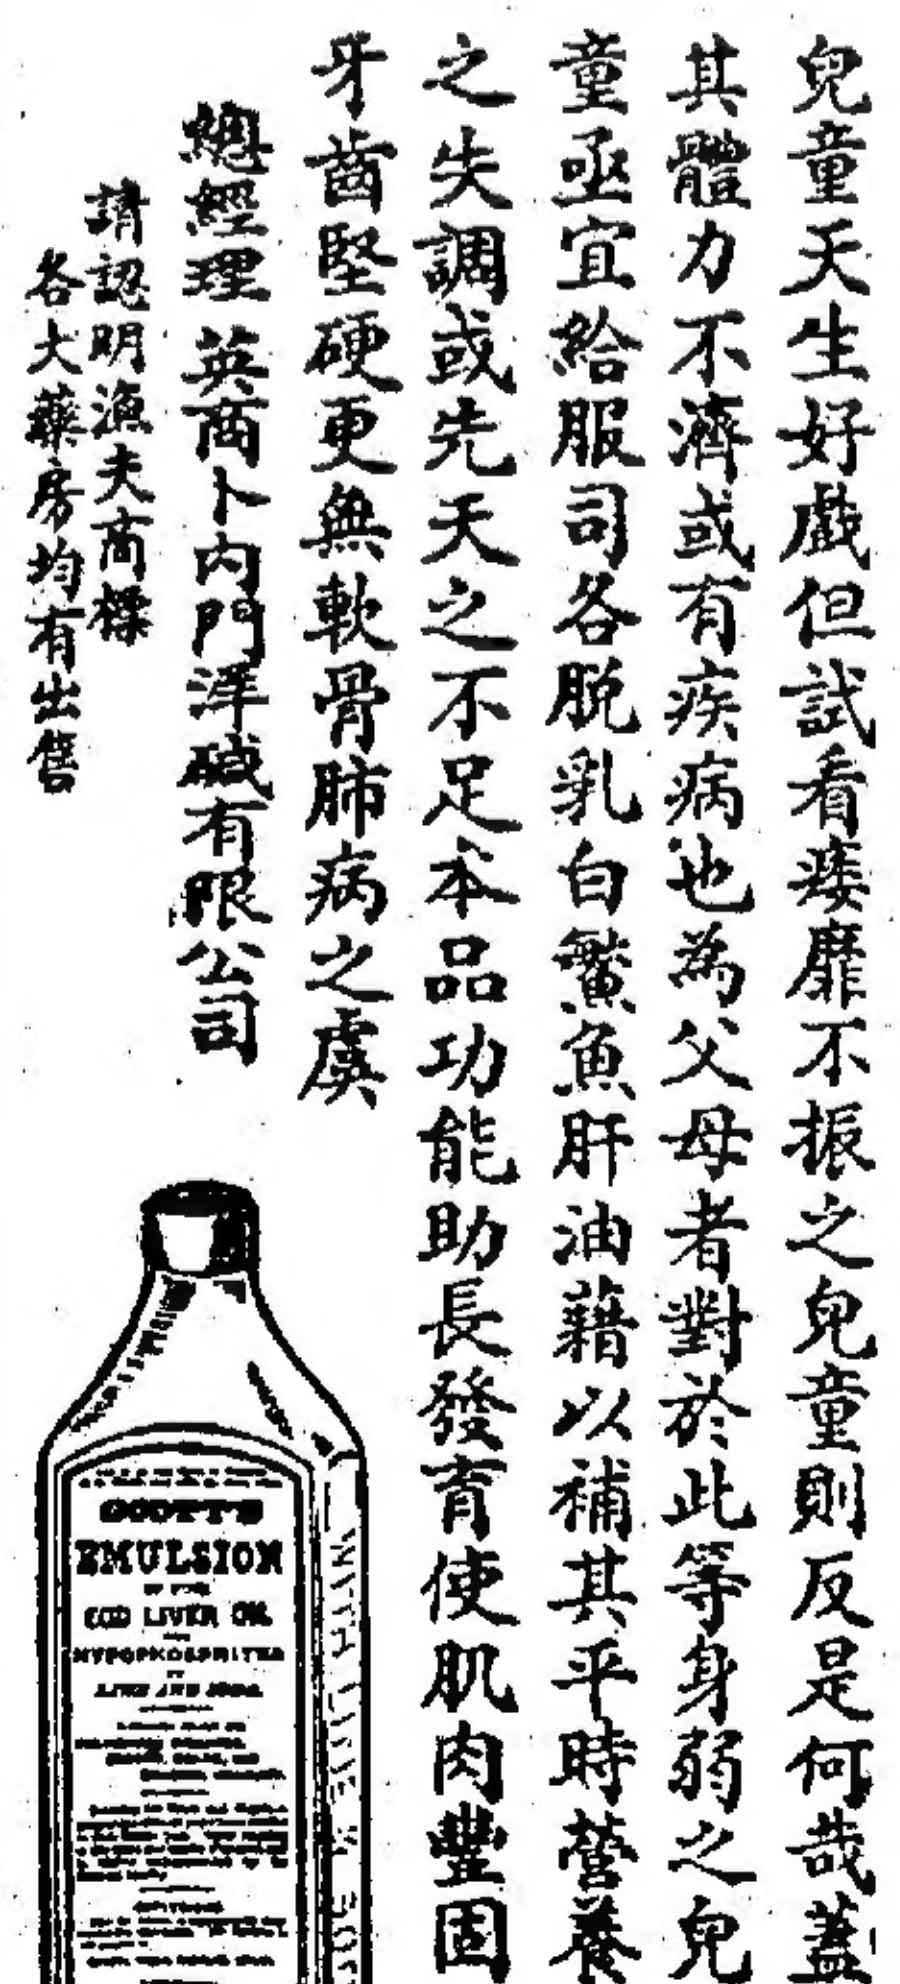 兒童天生好戲但試看痿靡不振之兒童則反是何哉蓋
其體力不濟或有疾病也為父母者對於此等身弱之兒
童亟宜給服司各脫乳白鱉魚肝油藉以補其平時營養
之失調或先天之不足本品功能助長發育使肌肉豐固
牙齒堅硬更無軟骨肺病之虞
總經理 英商卜內門洋碱有限公司
請認明漁夫商標
各大藥房均有出售
SCOTT'S
EMULSION
COD LIVER OIL
HYPOPHOSPHITES